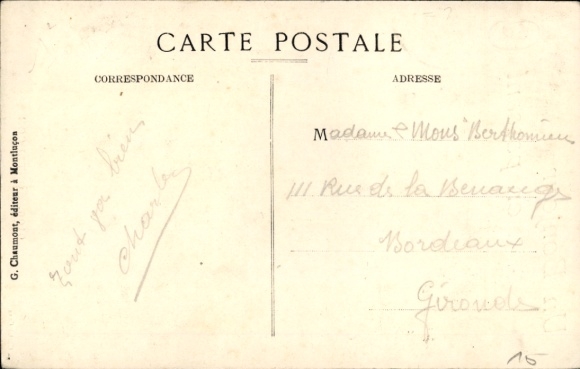 CARTE POSTALE
CORRESPONDANCE
ADRESSE
G. Chaumont, éditeur à Montluçon
Tout va bien
Charles
Madame & Mons Berthomieu
111 Rue de la Benauge
Bordeaux
Gironde
15